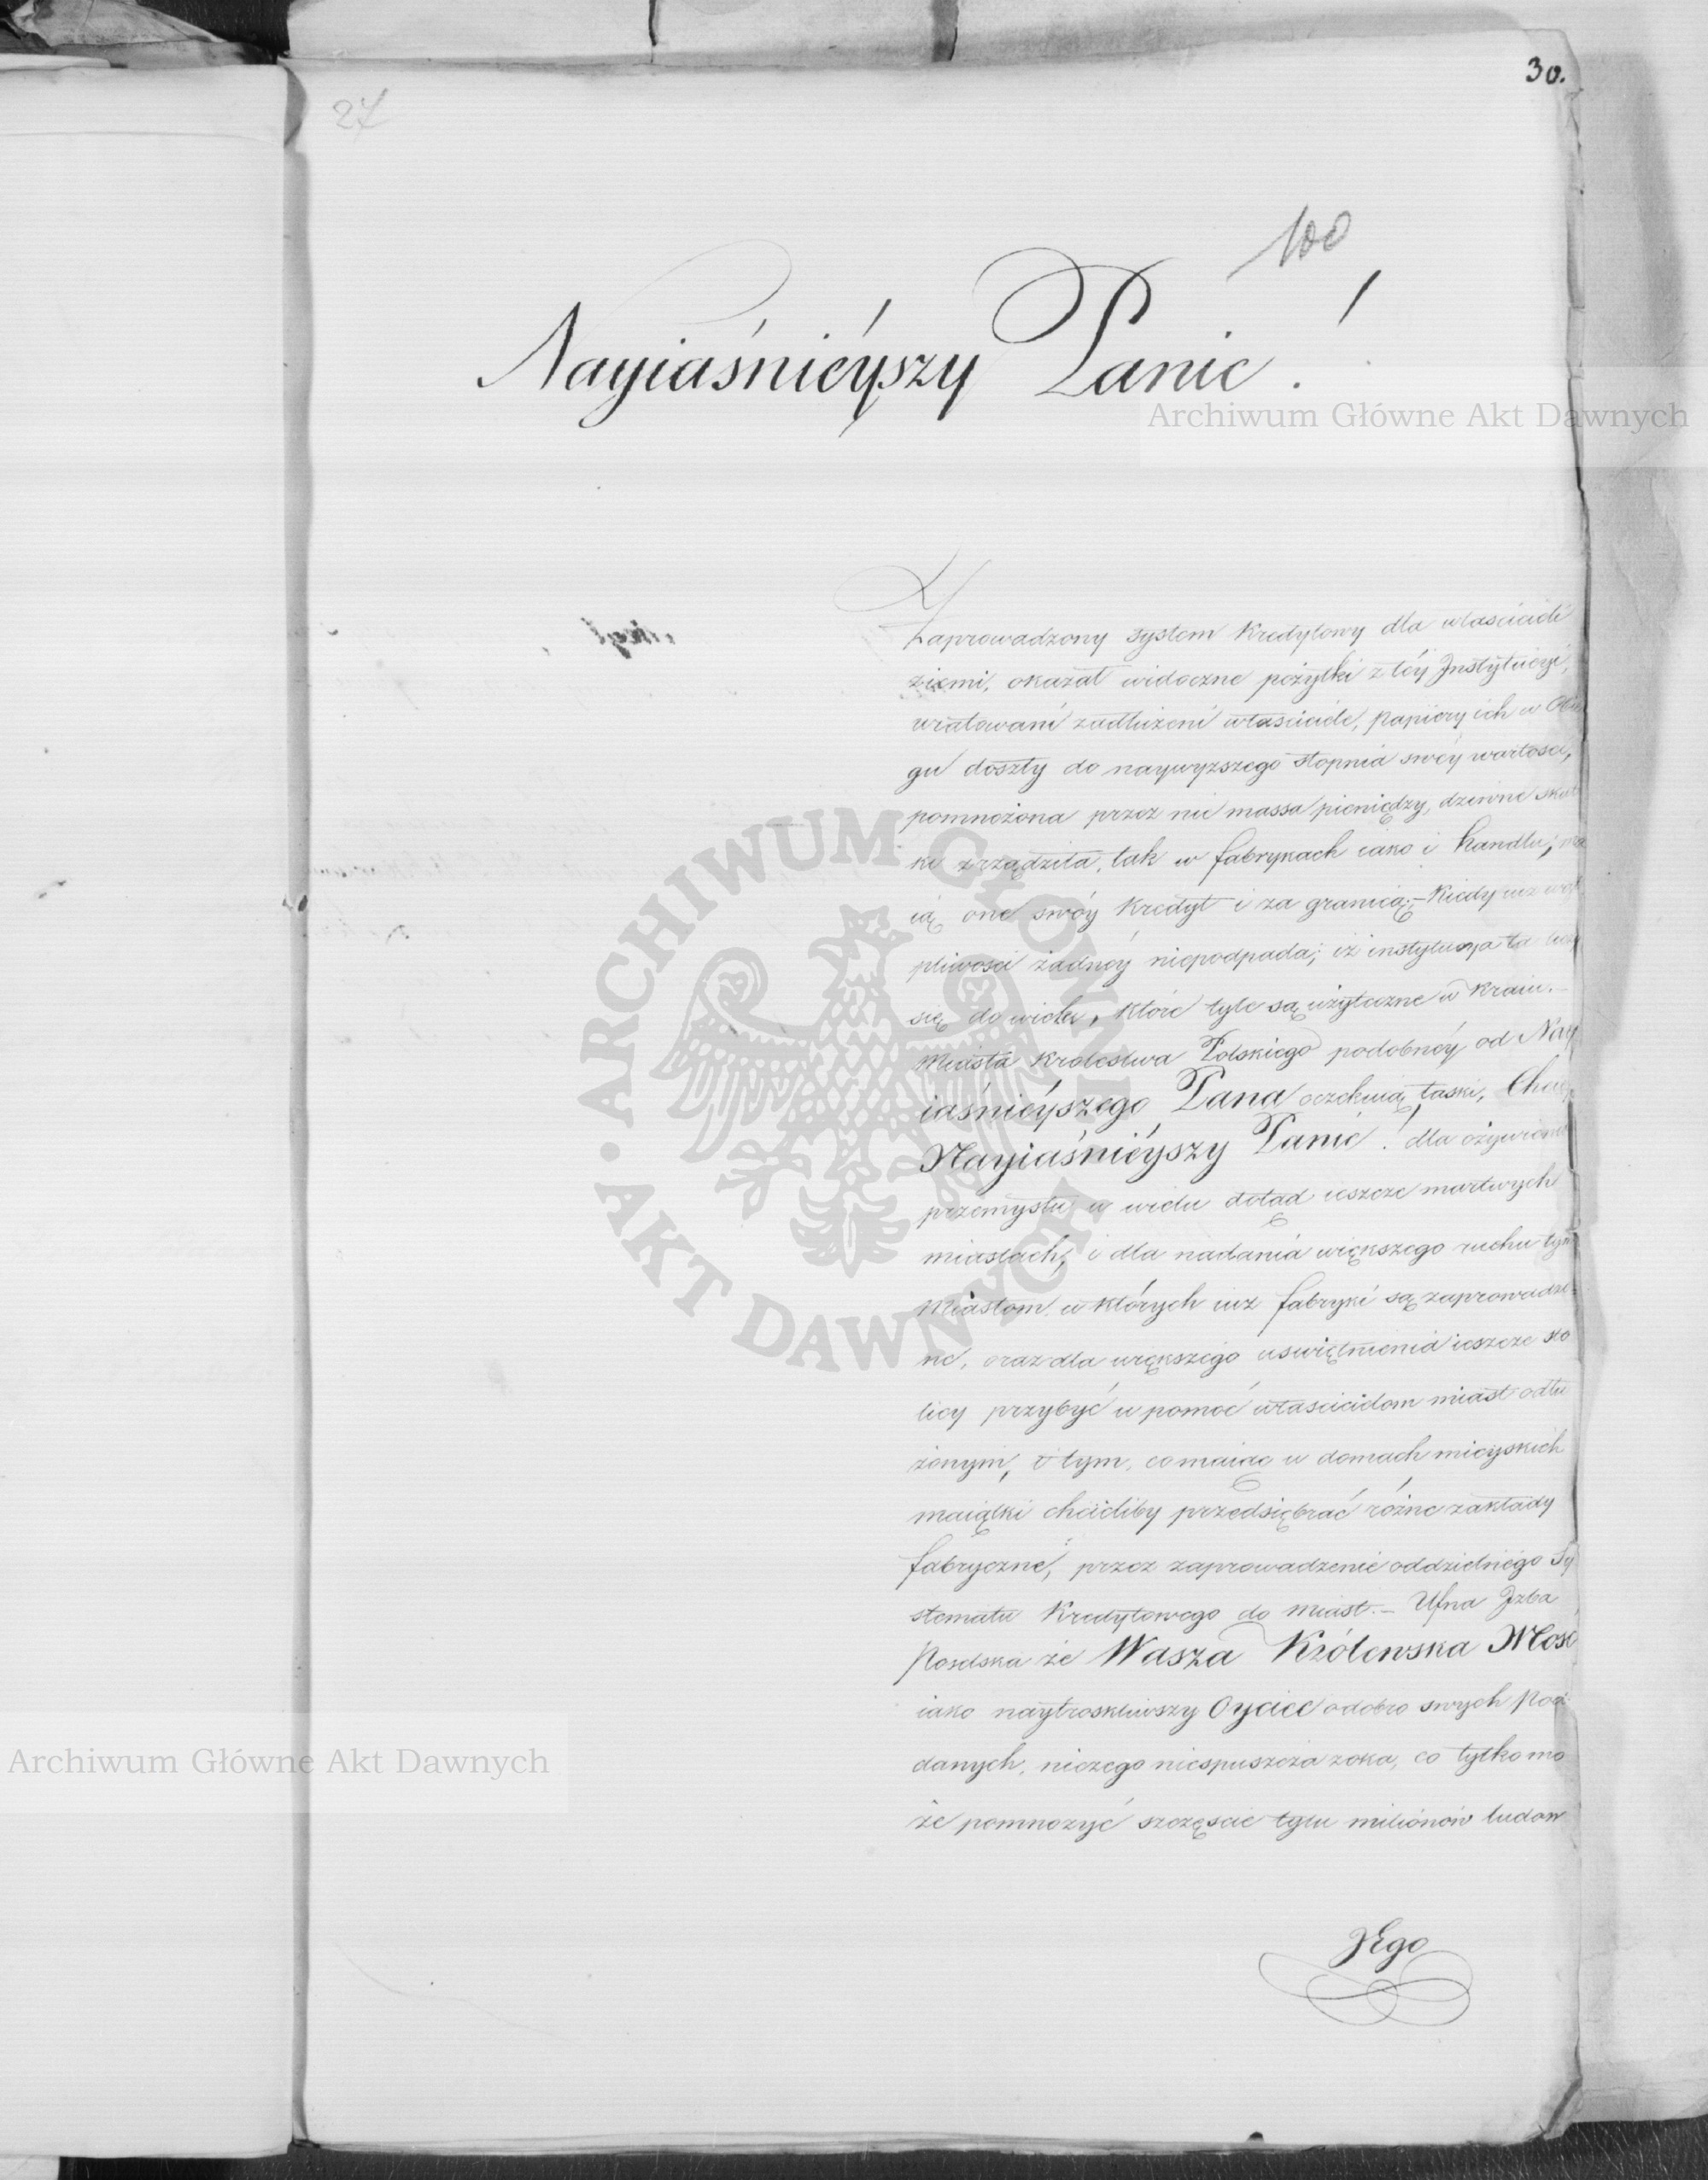 30.
27
100
Nayiaśnieyszy Panie!
Zaprowadzony system Kredytowy dla właścicieli
ziemi, okazał widoczne pożytki z téy Jnstytucyi,
uratowani zadłużeni właściciele, papiéry ich w Obie
gu doszły do naywyzszego stopnia swéy wartości,
pomnożona przez nie massa pieniędzy, dziwne skut
ki zrządziła, tak w fabrykach iako i handlu; ma
ią one swóy Kredyt i za granicą;- Kiedy iuz wąt
pliwosci żadnéy niepodpada; iż instytucya ta liczy
się do wielu, które tyle są użyteczne w Kraiu.-
Miasta Krolestwa Polskiego podobnéy od Nay
iaśnieyszego Pana oczekuią łaski, Chciey
Nayiaśnieyszy Panie! dla ożywienia
przemysłu w wielu dotąd ieszcze martwych
miastach, i dla nadania większego ruchu tym
Miastom w których iuz fabryki są zaprowadzo-
ne, oraz dla większego uswietnienia ieszcze sto
licy przybyć w pomoć właścicielom miast odłu
żonym, i tym, co maiąc w domach mieyskich
maiątki chcieliby przedsiębrać różne zakłady
fabryczne, przez zaprowadzenie oddzielnégo Sy
stematu Kredytowego do Miast.- Ufna Jzba
Poselska że Wasza Królewska Mość
iako naytroskliwszy Oyciec o dobro swych Pod
danych, niczego niespuszcza z oka, co tylko mo
że pomnożyć szczęscie tylu milionów ludow
JEgo
Archiwum Główne Akt Dawnych
ARCHIWUM GŁÓWNE · AKT DAWNYCH ·
Archiwum Główne Akt Dawnych